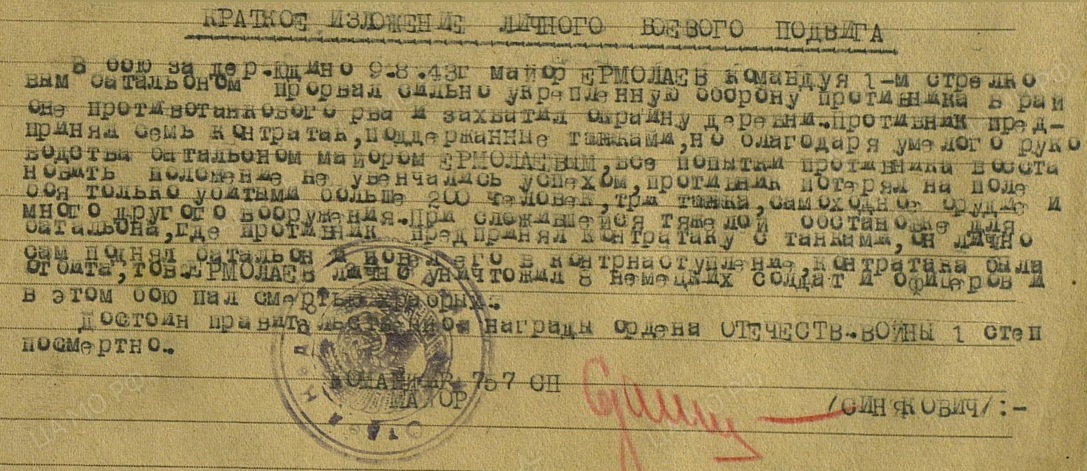 КРАТКОЕ ИЗЛОЖЕНИЕ ЛИЧНОГО БОЕВОГО ПОДВИГА
В бою за дер.Юдино 9.8.43г майор ЕРМОЛАЕВ командуя 1-м стрелко
вым батальоном прорвал сильно укрепленную оборону противника в рай
оне противотанкового рва и захватил окраину деревни.Противник пред-
принял семь контратак,поддержанные танками,но благодаря умелого руко
водства батальоном майором ЕРМОЛАЕВЫМ,все попытки противника восста
новить положение не увенчались успехом,противник потерял на поле
боя только убитыми больше 200 человек,три танка,самоходное орудие и
много другого вооружения.При сложившейся тяжелой обстановке для
батальона,где противник предпринял контратаку с танками,он лично
сам поднял батальон и повел его в контрнаступление,контратака была
отбита,тов.ЕРМОЛАЕВ лично уничтожил 8 немецких солдат и офицеров и
в этом бою пал смертью храбрых.
Достоин правительственной награды ордена ОТЕЧЕСТВ.ВОЙНЫ 1 степ
посмертно.
КОМАНДИР 757 СП
МАЙОР /СИНЯКОВИЧ/:-
ЦАМО РФ